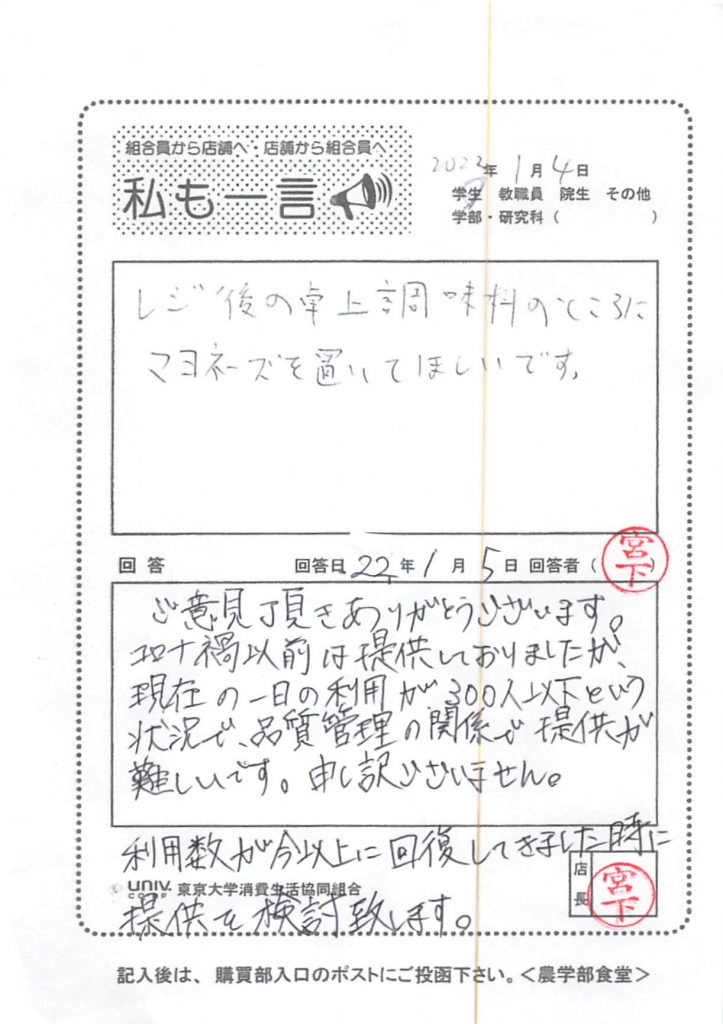 組合員から店舗へ・店舗から組合員へ
私も一言
2022年1月4日
学生 教職員 院生 その他
学部・研究科(      )
レジ後の卓上調味料のところに
マヨネーズを置いてほしいです。
回答 回答日 22年1月5日 回答者(宮下)
ご意見頂きありがとうございます。
コロナ禍以前は提供しておりましたが、
現在の一日の利用が300人以下という
状況で、品質管理の関係で提供が
難しいです。申し訳ございません。
利用数が今以上に回復してきました時に
univ. CO-OP 東京大学消費生活協同組合
店長 宮下
提供を検討致します。
記入後は、購買部入口のポストにご投函下さい。<農学部食堂>